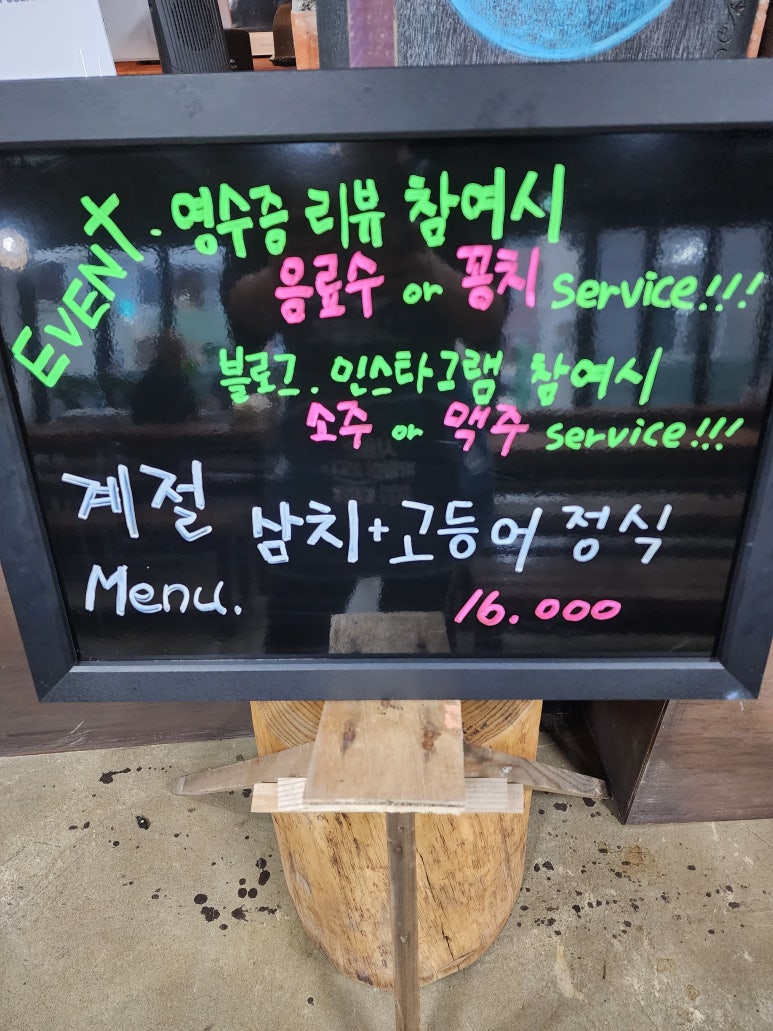 EVENT. 영수증 리뷰 참여시
음료수 or 꽁치 service!!!
블로그. 인스타그램 참여시
소주 or 맥주 service!!!
계절 삼치+고등어 정식
Menu. 16.000